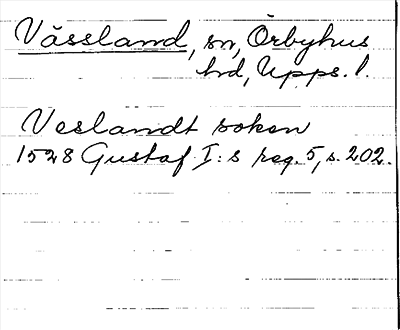 Vässland, sn, Örbyhus
hd, Upps. l.
Veslandt soken
1528 Gustaf I:s reg. 5, s. 202.